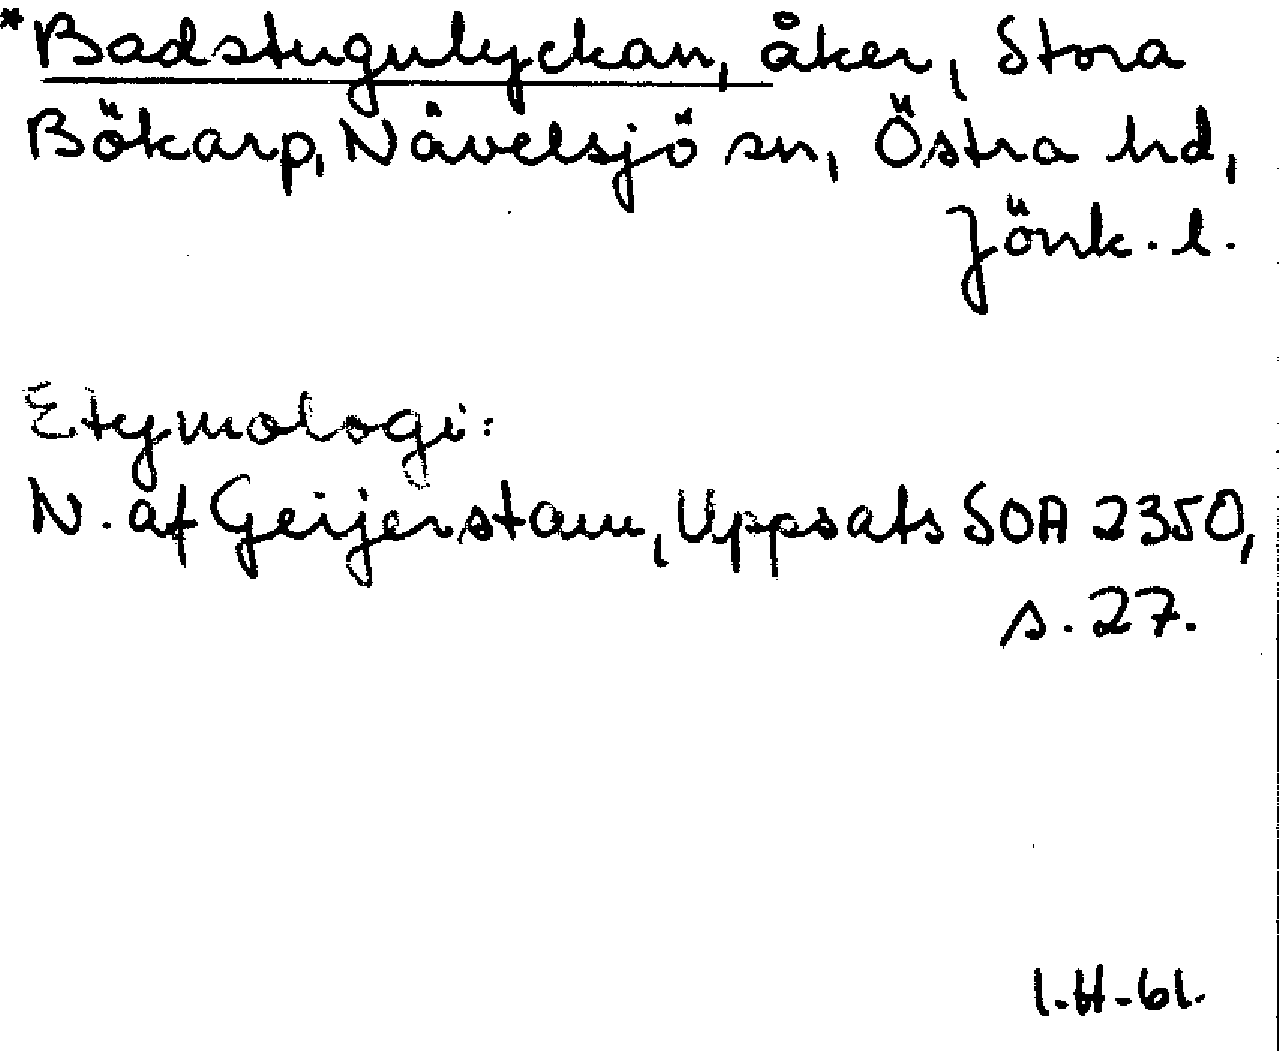 *Badstugulyckan, åker, Stora
Bökarp, Nävelsjö sn, Östra hd,
Jönk. l.
Etymologi:
N. af Geijerstam, Uppsats SOA 2350,
s. 27.
I.H-61.